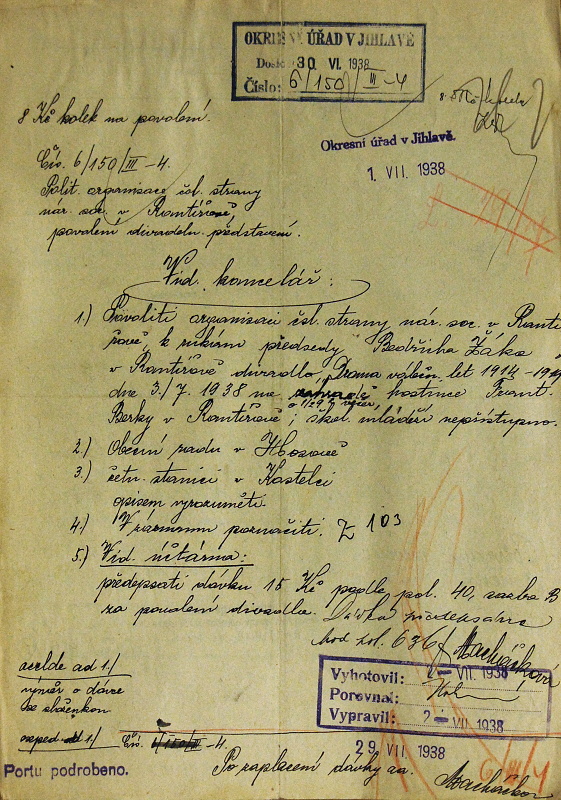 OKRESNÍ ÚŘAD V JIHLAVĚ
Došlo 30 VI. 1938
Číslo: 6/150/III-4
8 Kč kolek na povolení.
Okresní úřad v Jihlavě.
1. VII. 1938
Čís. 6/150/III-4.
Polit. organisace čsl. strany
nár. soc. v Rantířově,
povolení divadeln. představení.
Vid. kancelář:
1.) Povoliti organisaci čsl. strany nár. soc. v Rantí
řově, k rukám předsedy Bedřicha Žáka
v Rantířově divadlo „Drama válečn. let 1914-19
dne 3./7. 1938 na hostince Frant.
o 1/2 9 h večer,
Berky v Rantířově; škol. mládeži nepřístupno.
2.) Obecní radu v Hosově
3.) četn. stanici v Kostelci
opisem vyrozuměti.
4.) V záznamu poznačiti. Z 103
5.) Vid. účtárna:
předepsati dávku 15 Kč podle pol. 40, sazba B
za povolení divadla. Dávka předepsána
pol. 636/ Macháčková
ad 1./
výměr o dávce
se složenkou
Vyhotovil: 2- VII. 1938
Porovnal:
Vypravil: 2- VII. 1938
ad 1./ Čís. 6/150/III-4.
29 VII. 1938
Portu podrobeno.
Po zaplacení dávky aa.
6/III/4